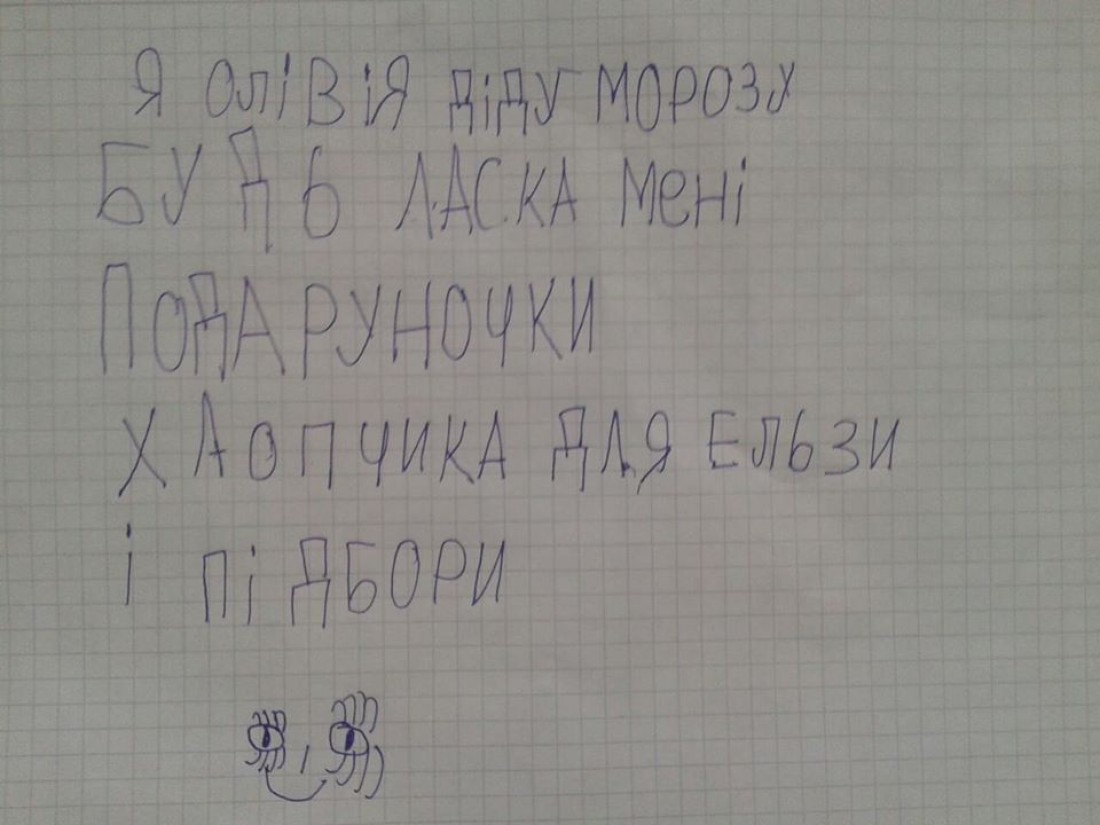 Я ОЛІВІЯ ДІДУ МОРОЗУ
БУДЬ ЛАСКА МЕНІ
ПОДАРУНОЧКИ
ХЛОПЧИКА ДЛЯ ЕЛЬЗИ
І ПІДБОРИ